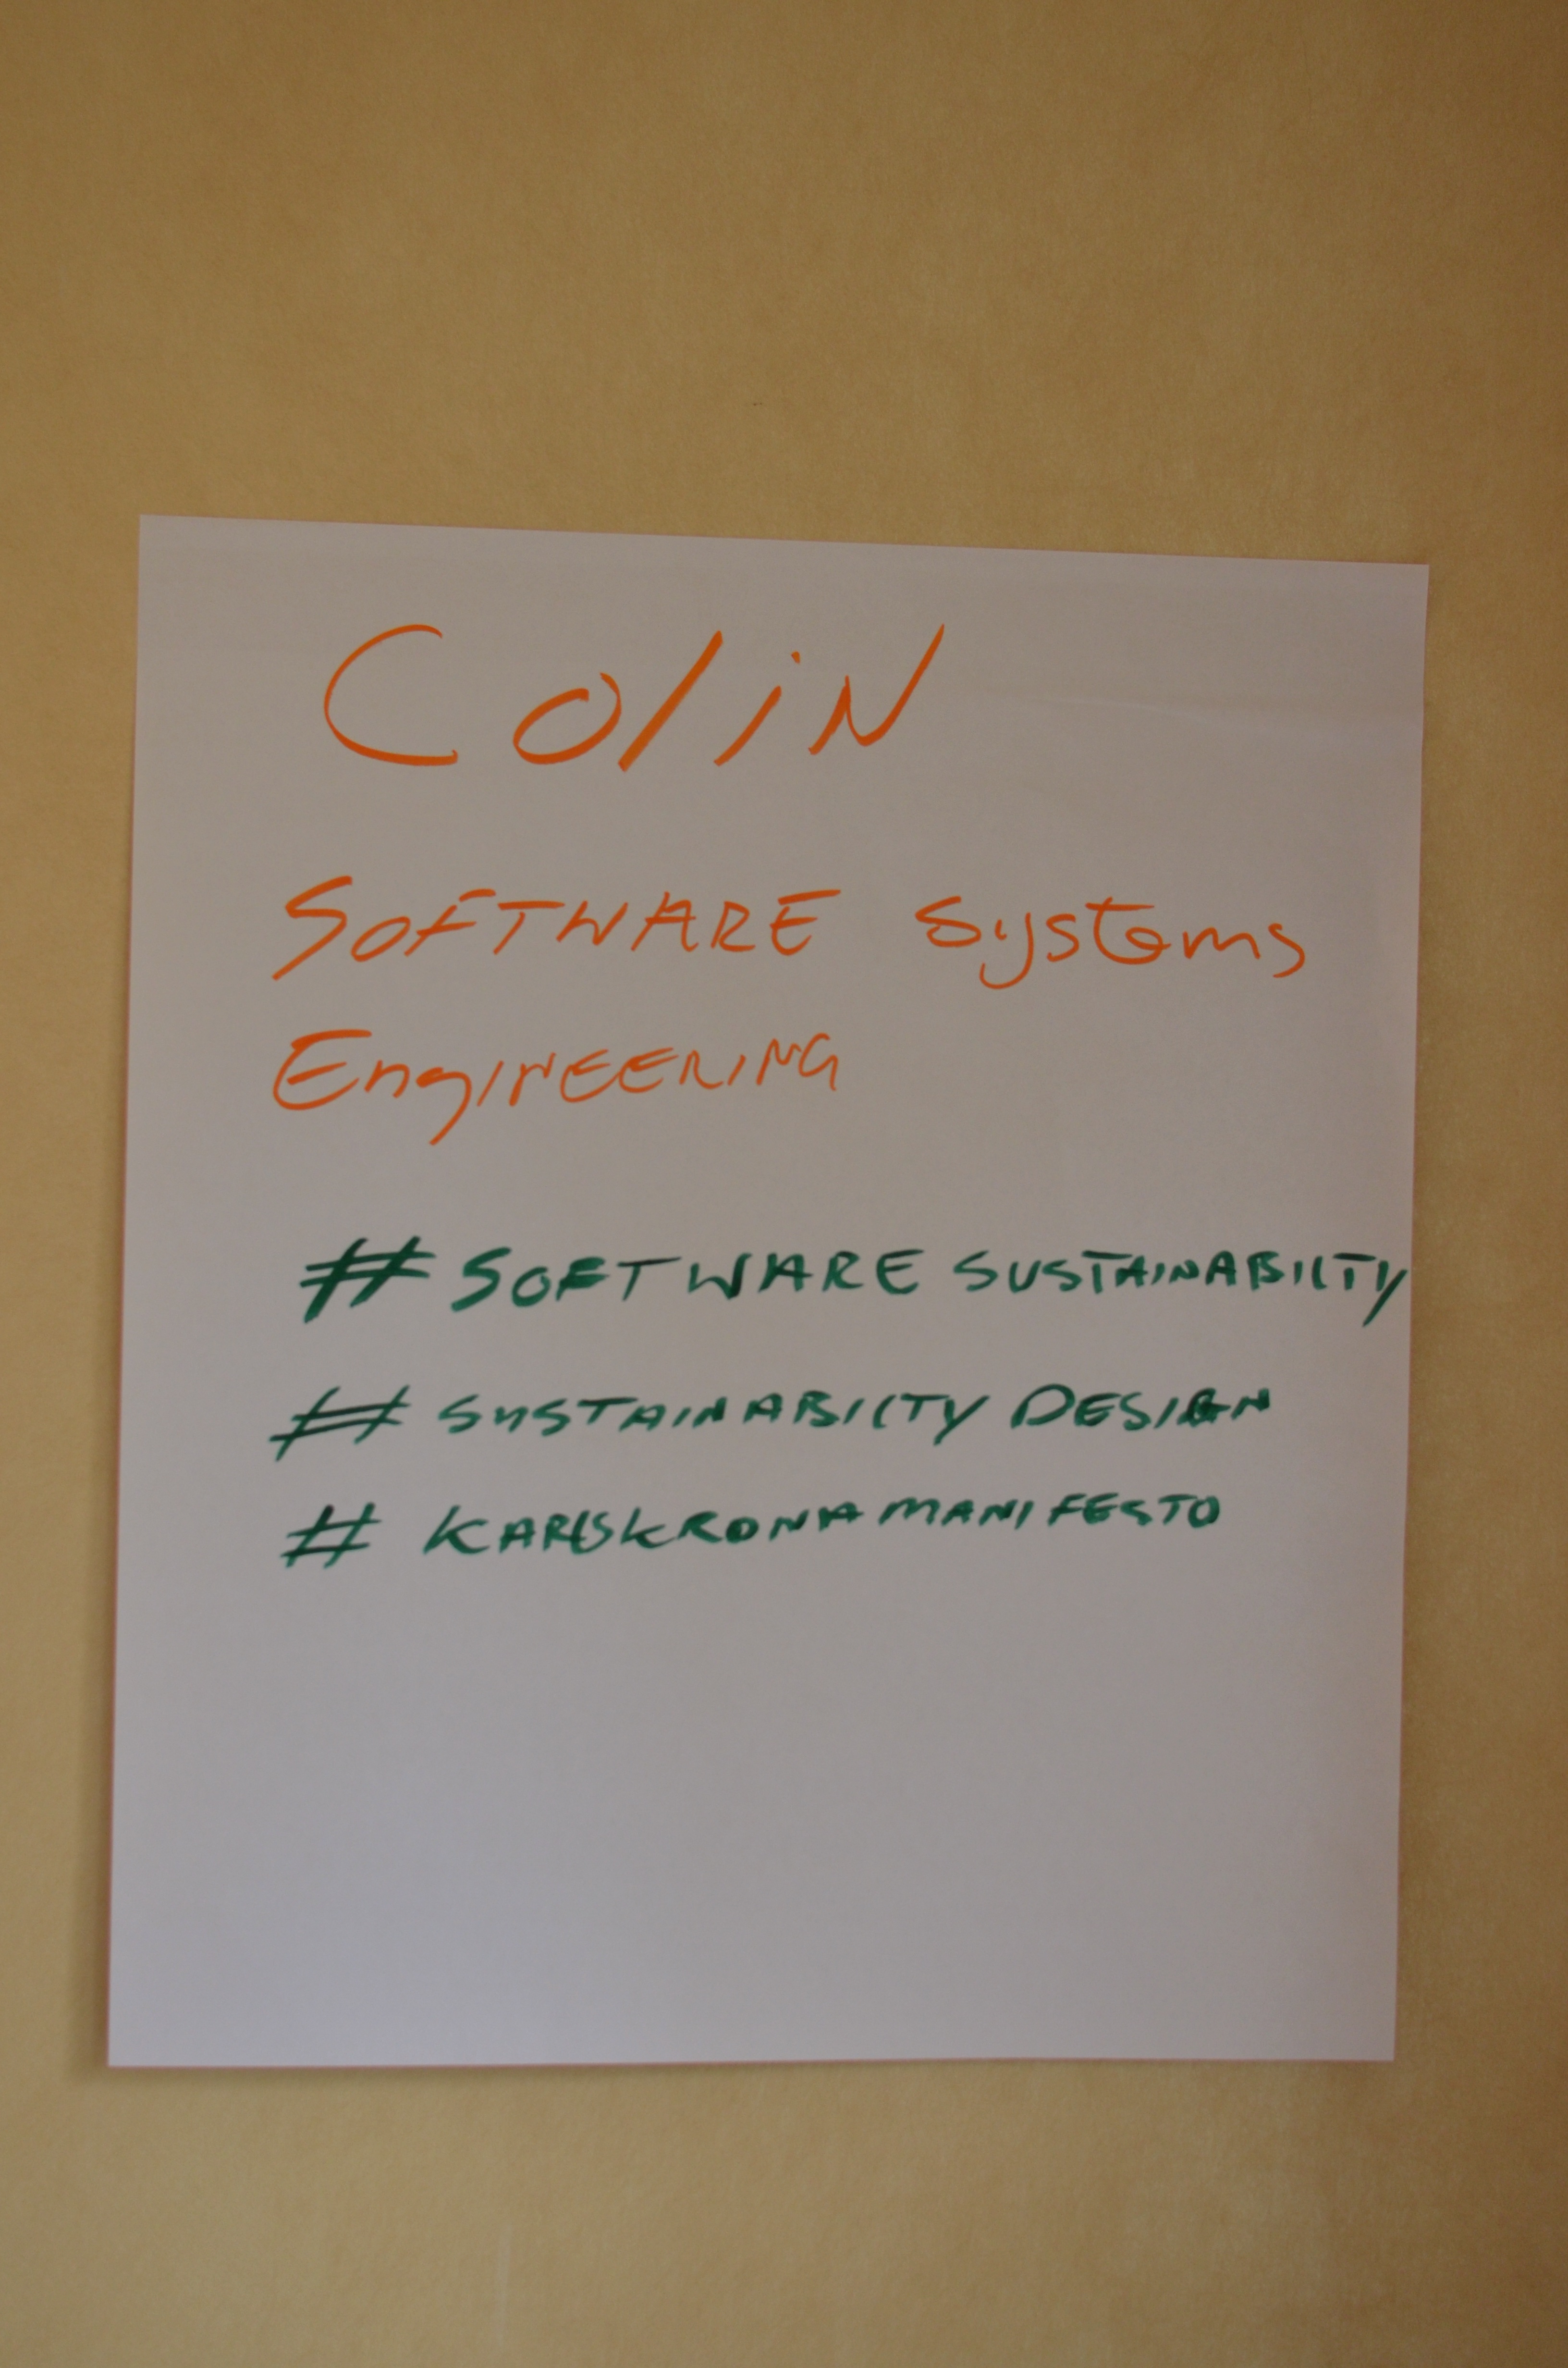 Colin
SOFTWARE Systems
EngINEERING
# SOFTWARE SUSTAINABILTY
# SUSTAINABILTY DESIGN
# KARLSKRONA MANIFESTO